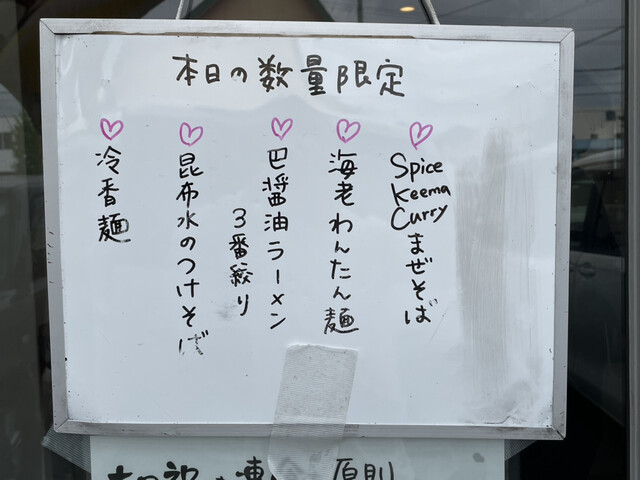 本日の数量限定
Spice
Keema
Curry
まぜそば
海老わんたん麺
巴醤油ラーメン
3番絞り
昆布水のつけそば
冷香麺
原則